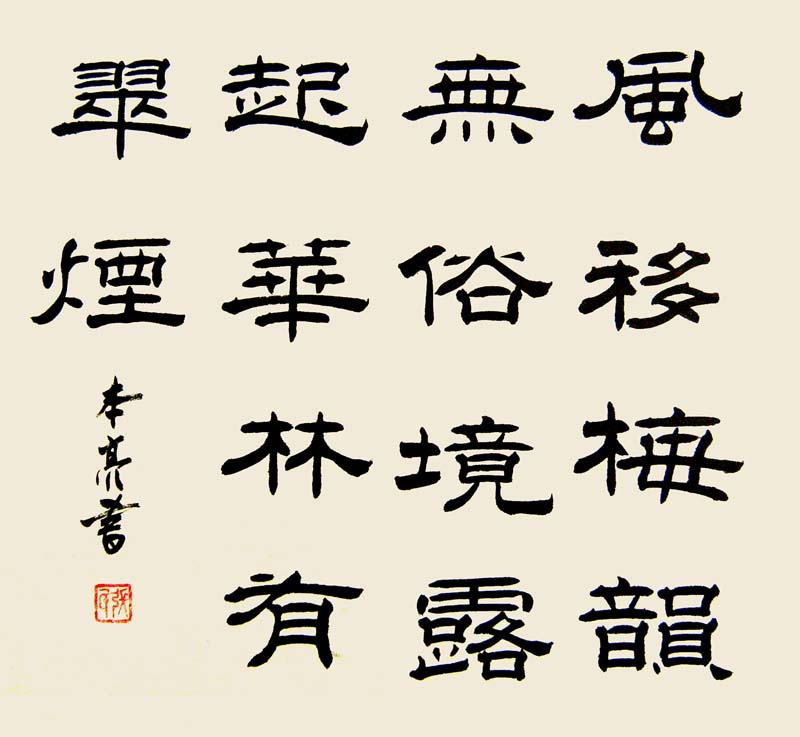 風移梅韻
無俗境露
起華林有
翠煙
本亮書